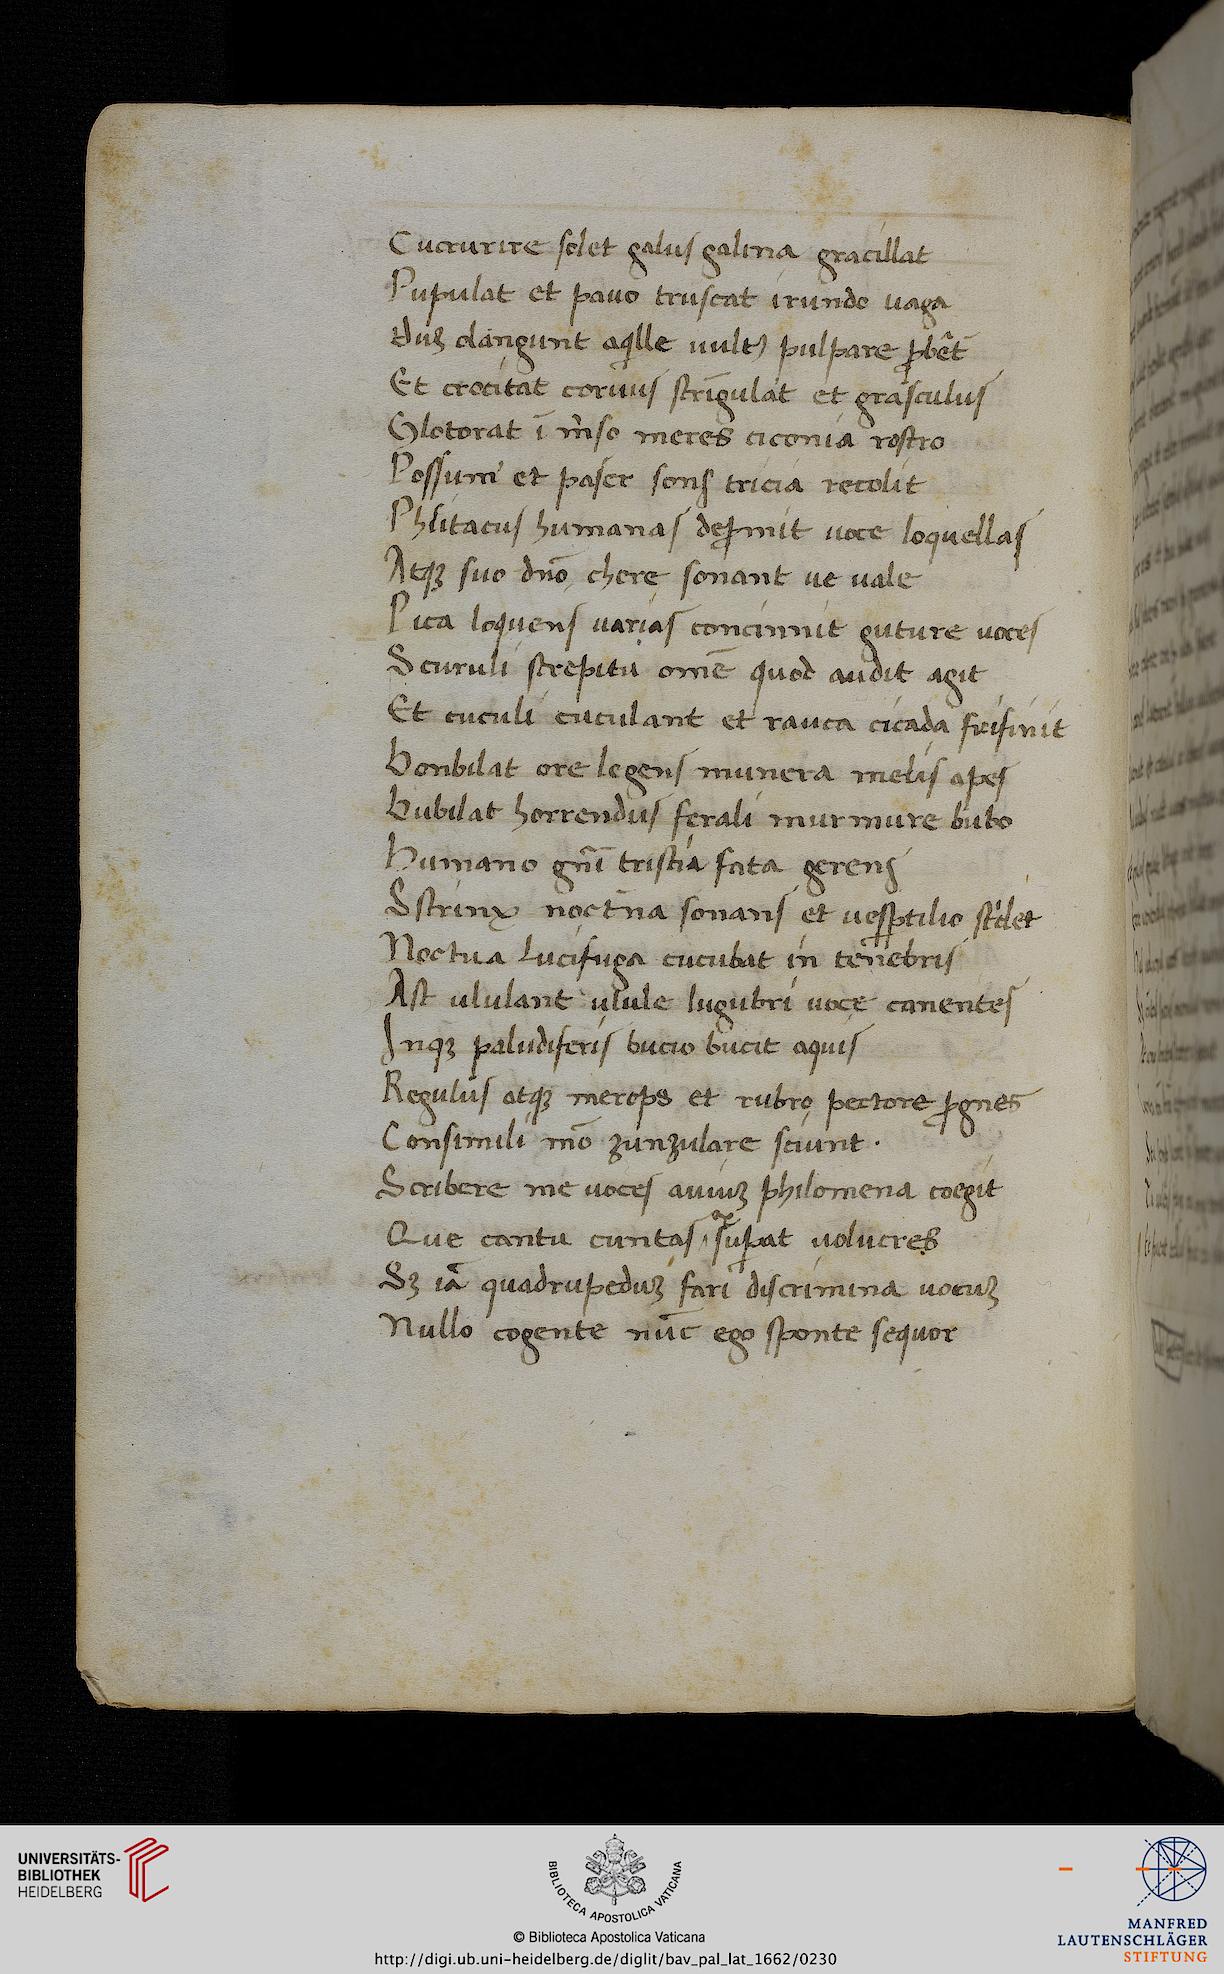 Cucurire solet galus galina gracillat
Pupulat et pavo truscat irundo vaga
duꝫ clangunt aqͥlle vultꝰ pulpare ꝓbāt
Et crocitat corvus stri͞gulat et grasculus
Glotorat i͞ m̄so meres ciconia rostro
Possum̄ et paser sons tricia recolit
Phsitacus humanas depͥmit voce loquellas
Atqꝫ suo dn̄o chere sonant ve vale
Pica loquens varias concinnit guture voces
Scuruli strepitu om̄e quod audit agit
Et cuculi cuculant et rauca cicada frisinit
Bonbilat ore legens munera melis apes
Bubilat horrendus ferali murmure bubo
Humano gn̄i tristia fata gerens
Sstrinx noct̄na sonans et vesꝑtilio stͥdet
Noctua Lucifuga cucubat in tenebris
Ast ululant ulule lugubri voce canentes
Inqꝫ paludiferis bucio bucit aquis
Regulus atqꝫ merops et rubro pectore ꝓgnes
Consimili mō zunzulare sciunt.
Scribere me voces aviuꝫ philomena coegit
Que cantu cuntas suꝑat volucres
Sꝫ iā quadrupeduꝫ fari discrimina vocuꝫ
Nullo cogente nūc ego sponte sequor
UNIVERSITÄTS-
BIBLIOTHEK
HEIDELBERG
BIBLIOTECA APOSTOLICA VATICANA
© Biblioteca Apostolica Vaticana
http://digi.ub.uni-heidelberg.de/diglit/bav_pal_lat_1662/0230
MANFRED
LAUTENSCHLÄGER
STIFTUNG